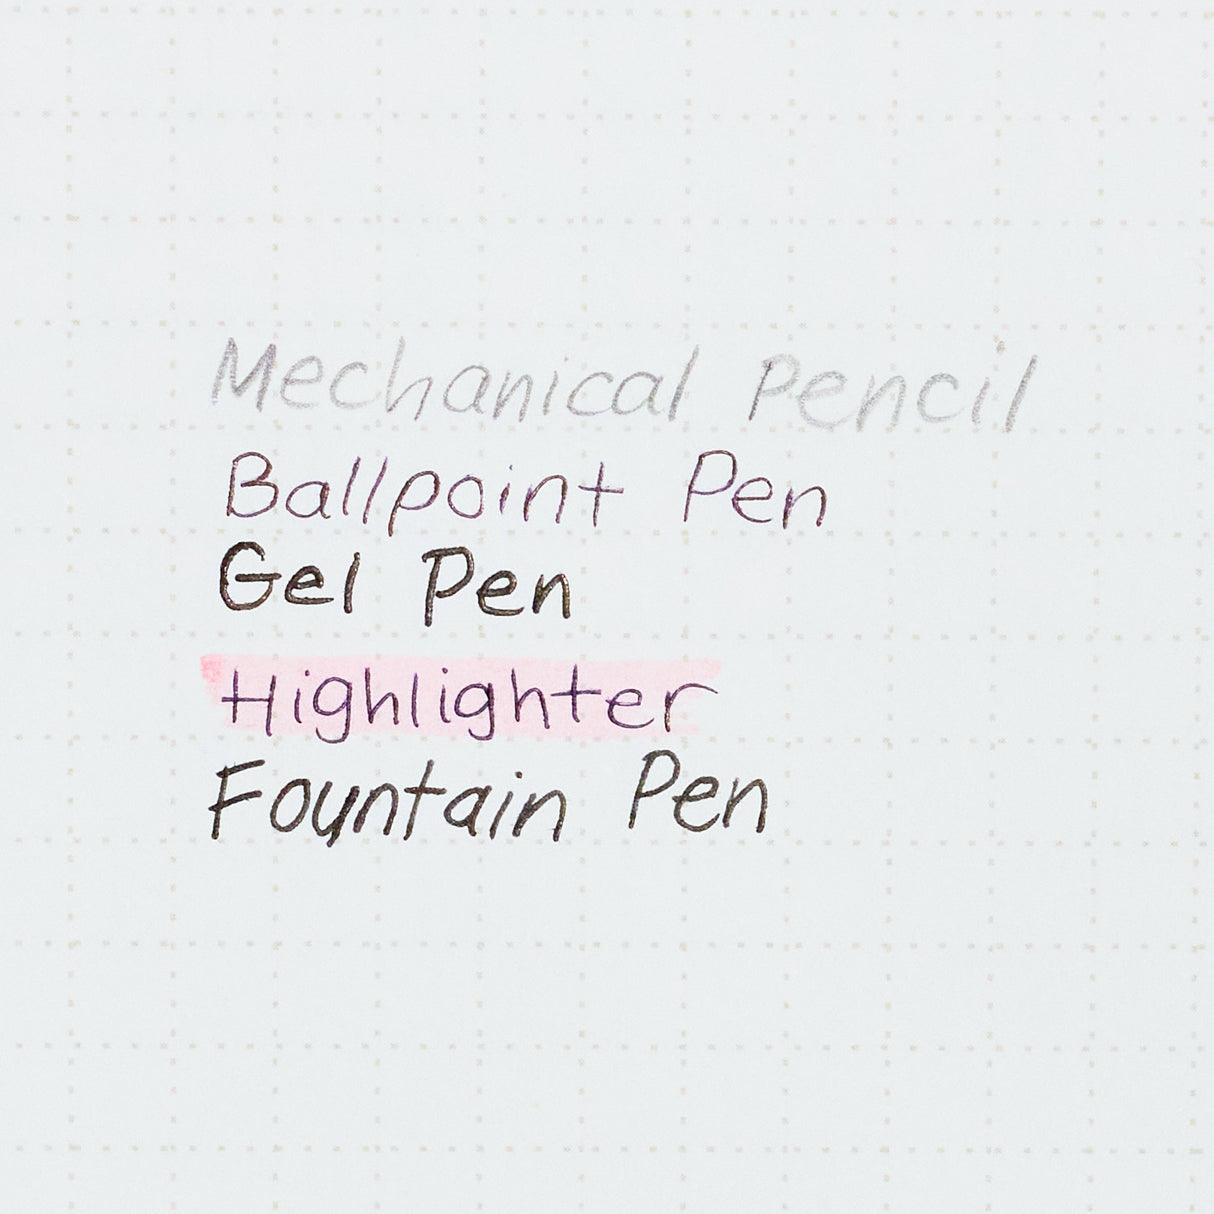 Mechanical Pencil
Ballpoint Pen
Gel Pen
Highlighter
Fountain Pen